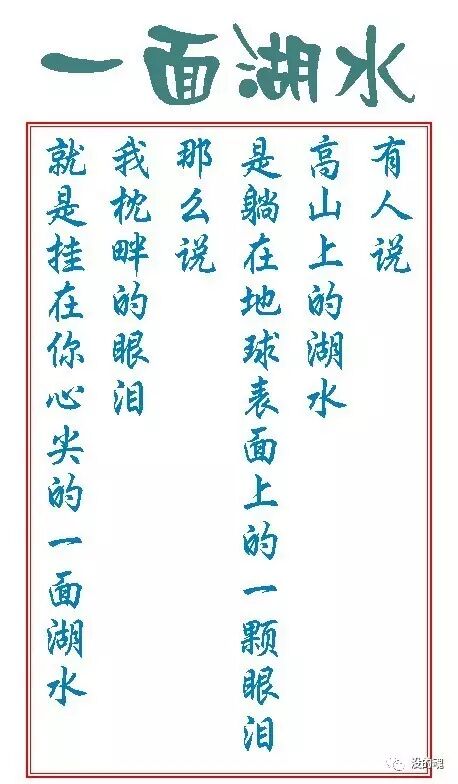 一面湖水
有人说
高山上的湖水
是躺在地球表面上的一颗眼泪
那么说
我枕畔的眼泪
就是挂在你心尖的一面湖水
没的魂